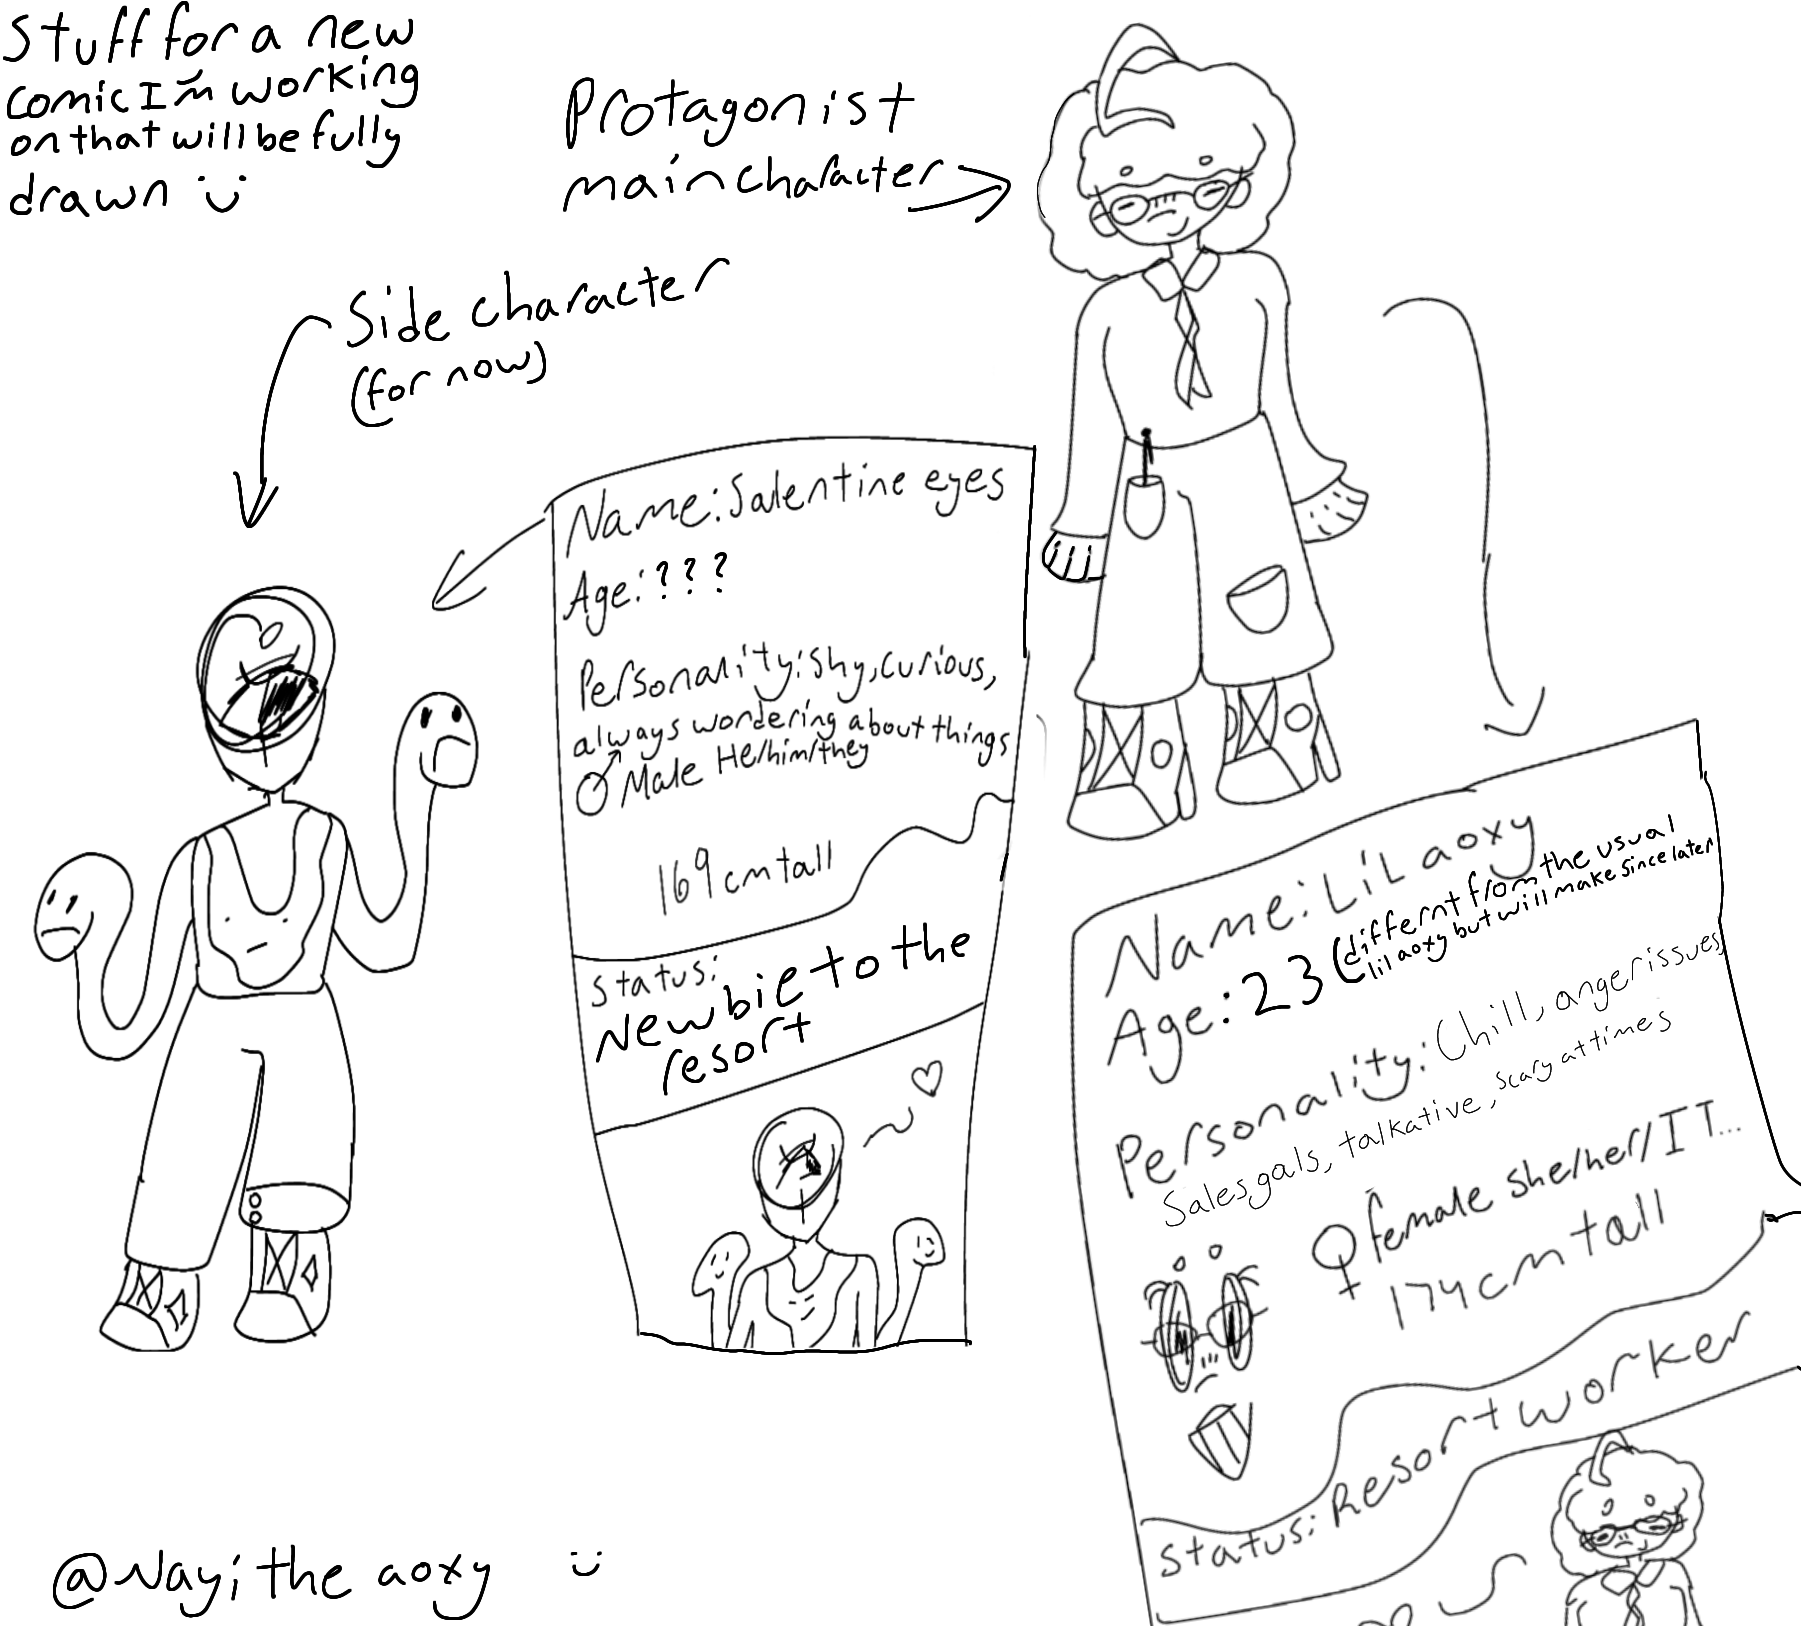 Stuff for a new
comic I'm working
on that will be fully
drawn :)
Protagonist
main character
Side character
(for now)
Name: Salentine eyes
Age: ???
Personality: shy, curious,
always wondering about things
♂ Male He/him/they
169 cm tall
Status:
Newbie to the
resort
Name: LiL aoxy
Age: 23 (differnt from the usual
lil aoxy but will make since later
Personality: Chill, anger issues
Salesgals, talkative, scary at times
♀ female she/her/IT...
174 cm tall
Status: Resort worker
@Nayi the aoxy :)